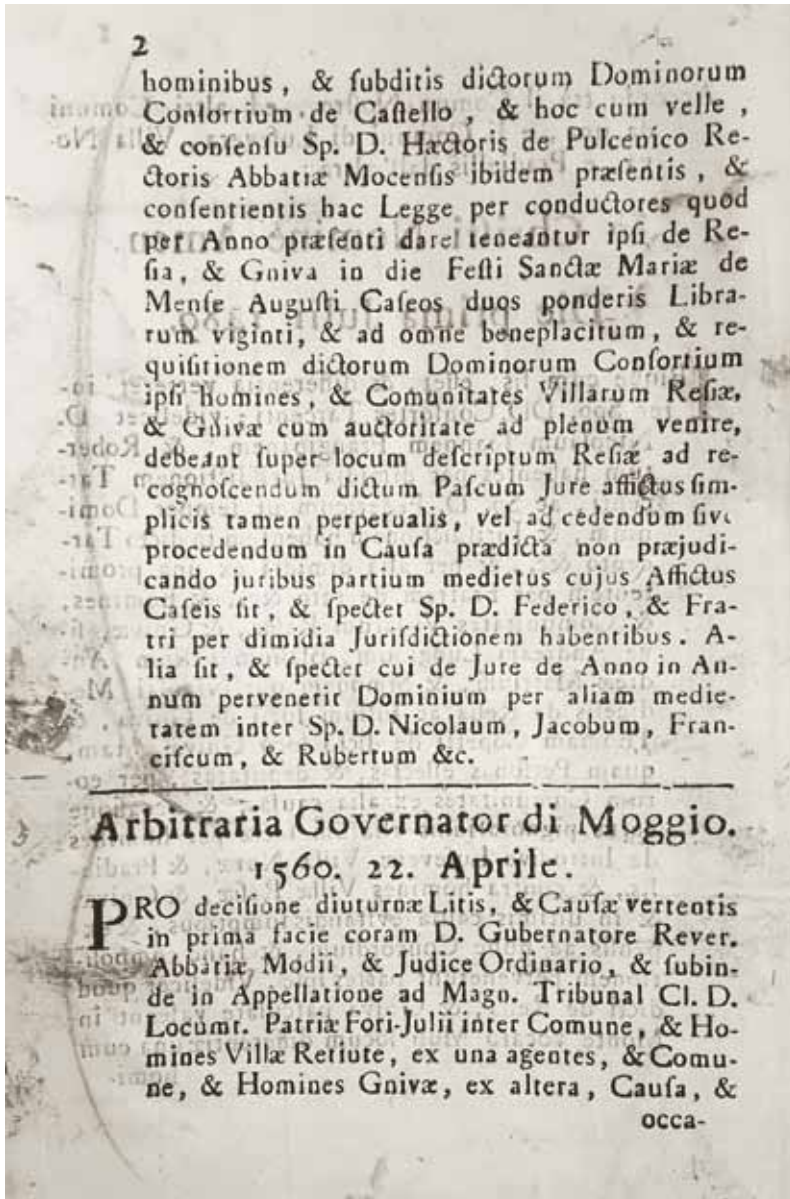 2
hominibus, & ſubditis dictorum Dominorum
Conſortium de Caſtello, & hoc cum velle,
& conſenſu Sp. D. Hæctoris de Pulcenico Re-
ctoris Abbatiæ Mocenſis ibidem præſentis, &
conſentientis hac Legge per conductores quod
per Anno præſenti dare teneantur ipſi de Re-
ſia, & Gniva in die Feſti Sanctæ Mariæ de
Menſe Auguſti Caſeos duos ponderis Libra-
rum viginti, & ad omne beneplacitum, & re-
quiſitionem dictorum Dominorum Conſortium
ipſi homines, & Comunitates Villarum Reſiæ,
& Gnivæ cum auctoritate ad plenum venire,
debeant ſuper locum deſcriptum Reſiæ ad re-
cognoſcendum dictum Paſcum Jure affictus ſim-
plicis tamen perpetualis, vel ad cedendum ſive
procedendum in Cauſa prædicta non præjudi-
cando juribus partium medietus cujus Affictus
Caſeis ſit, & ſpectet Sp. D. Federico, & Fra-
tri per dimidia Juriſdictionem habentibus. A-
lia ſit, & ſpectet cui de Jure de Anno in An-
num pervenerit Dominium per aliam medie-
tatem inter Sp. D. Nicolaum, Jacobum, Fran-
ciſcum, & Rubertum &c.
Arbitraria Governator di Moggio.
1560. 22. Aprile.
PRO deciſione diuturnæ Litis, & Cauſæ vertentis
in prima facie coram D. Gubernatore Rever.
Abbatiæ Modii, & Judice Ordinario, & ſubin-
de in Appellatione ad Magn. Tribunal Cl. D.
Locumt. Patriæ Fori-Julii inter Comune, & Ho-
mines Villæ Retiute, ex una agentes, & Comu-
ne, & Homines Gnivæ, ex altera, Cauſa, &
occa-